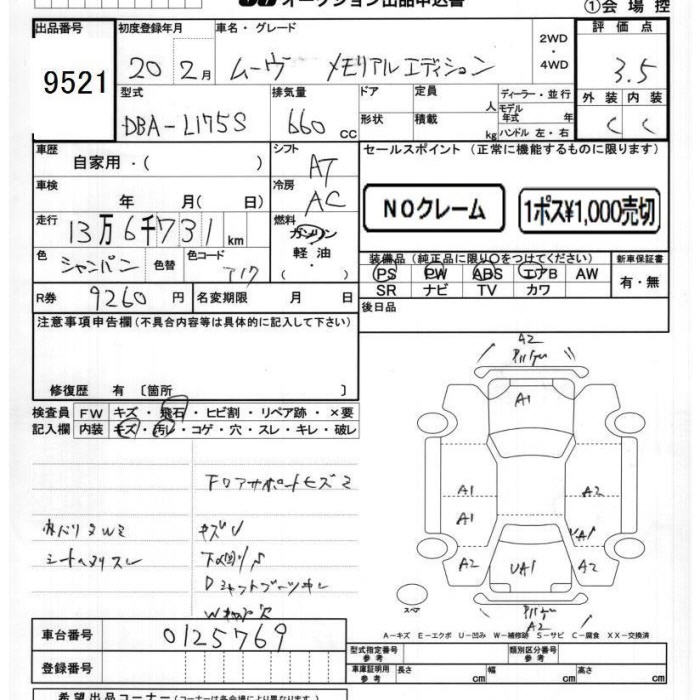 オークション出品申込書
①会場控
出品番号 初度登録年月 車名・グレード 評価点
9521 20 2月 ムーヴ メモリアルエディション 2WD・4WD 3.5
型式 排気量 ドア 定員 人 ディーラー・並行 外装 内装
DBA-L175S 660 cc 形状 積載 kg モデル年式 年 ハンドル 左・右 C C
車歴 シフト セールスポイント(正常に機能するものに限ります)
自家用・( ) AT
車検 冷房
年 月(日) AC NOクレーム 1ポス¥1,000売切
走行 燃料
13万6千731km ガソリン
軽油
色 シャンパン 色替 色コード T17 ・( ) 装備品(純正品に限り○をつけてください) 新車保証書
PS PW ABS エアB AW 有・無
R券 9260円 名変期限 月 日 SR ナビ TV カワ
後日品
注意事項申告欄(不具合内容等は具体的に記入して下さい)
修復歴 有〔箇所 〕
検査員 FW キズ・飛石・ヒビ割・リペア跡・×要
記入欄 内装 キズ・汚レ・コゲ・穴・スレ・キレ・破レ
A2
A1
A1 A2
A1
A2 UA1 A2
スペア
A2
A-キズ E-エクボ U-凹み W-補修跡 S-サビ C-腐食 XX-交換済
車台番号 0125769
型式指定番号 参考 類別区分番号 参考
登録番号 車庫証明用 参考 長さ cm 幅 cm 高さ cm
希望出品コーナー(コーナーは各会場により異なります)